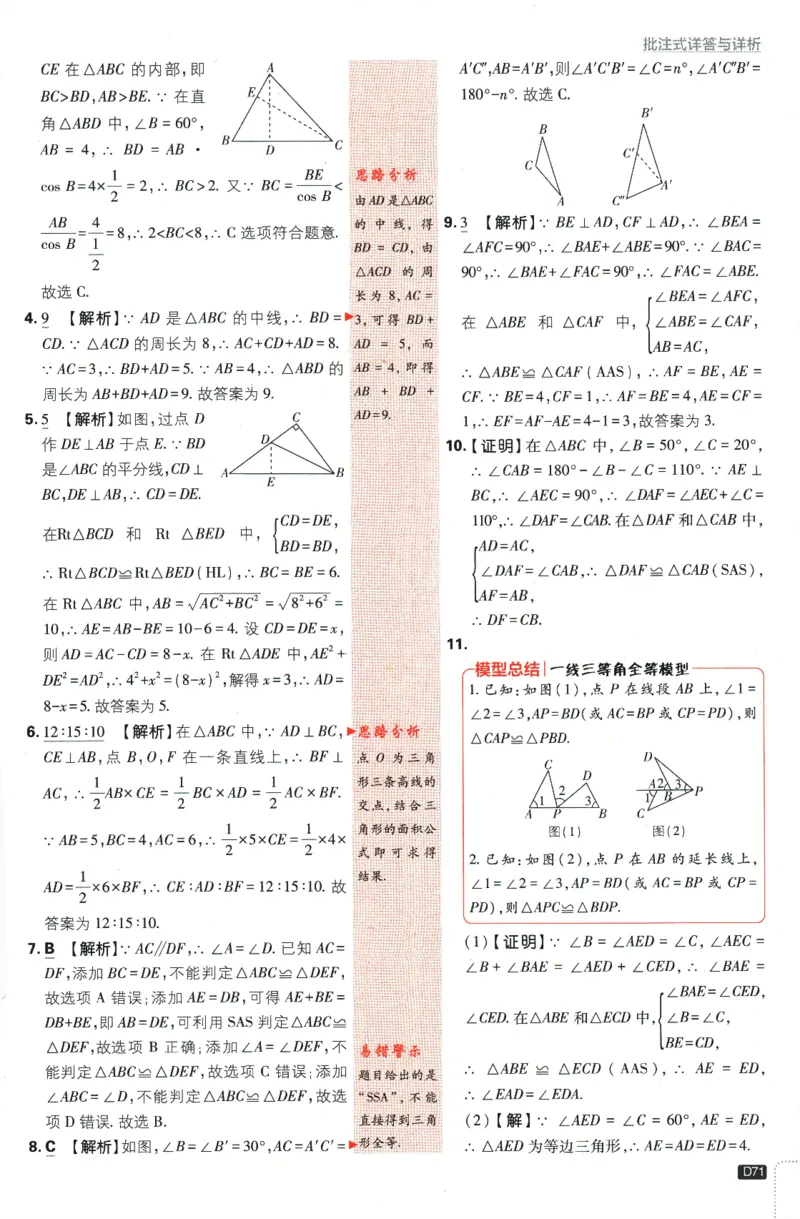 批注式详答与详析
CE 在△ABC 的内部,即
BC>BD,AB>BE. ∵ 在直
角△ABD 中,∠B=60°,
AB = 4, ∴ BD = AB ·
cos B=4×1/2=2,∴ BC>2. 又∵ BC=BE/cos B<
AB/cos B=4/(1/2)=8,∴ 2<BC<8,∴ C 选项符合题意.
故选 C.
A
E
B
D
C
4. 9 【解析】∵ AD 是△ABC 的中线,∴ BD=
CD. ∵ △ACD 的周长为 8,∴ AC+CD+AD=8.
∵ AC=3,∴ BD+AD=5. ∵ AB=4,∴ △ABD 的
周长为 AB+BD+AD=9. 故答案为 9.
5. 5 【解析】如图,过点 D
作 DE⊥AB 于点 E. ∵ BD
是∠ABC 的平分线,CD⊥
BC,DE⊥AB,∴ CD=DE.
C
D
A
E
B
在Rt△BCD 和 Rt △BED 中,{CD=DE,
BD=BD,
∴ Rt△BCD≌Rt△BED(HL),∴ BC=BE=6.
在 Rt△ABC 中,AB=√(AC²+BC²)=√(8²+6²)=
10,∴ AE=AB-BE=10-6=4. 设 CD=DE=x,
则 AD=AC-CD=8-x. 在 Rt△ADE 中,AE²+
DE²=AD²,∴ 4²+x²=(8-x)²,解得 x=3,∴ AD=
8-x=5. 故答案为 5.
6. 12∶15∶10 【解析】在△ABC 中,∵ AD⊥BC,
CE⊥AB,点 B,O,F 在一条直线上,∴ BF⊥
AC,∴ 1/2AB×CE=1/2BC×AD=1/2AC×BF.
∵ AB=5,BC=4,AC=6,∴ 1/2×5×CE=1/2×4×
AD=1/2×6×BF,∴ CE∶AD∶BF=12∶15∶10. 故
答案为 12∶15∶10.
7. B 【解析】∵ AC∥DF,∴ ∠A=∠D. 已知 AC=
DF,添加 BC=DE,不能判定△ABC≌△DEF,
故选项 A 错误;添加 AE=DB,可得 AE+BE=
DB+BE,即 AB=DE,可利用 SAS 判定△ABC≌
△DEF,故选项 B 正确;添加∠A=∠DEF,不
能判定△ABC≌△DEF,故选项 C 错误;添加
∠ABC=∠D,不能判定△ABC≌△DEF,故选
项 D 错误. 故选 B.
8. C 【解析】如图,∠B=∠B′=30°,AC=A′C′=
思路分析
由 AD 是△ABC
的 中 线, 得
BD = CD, 由
△ACD 的 周
长 为 8, AC =
3, 可得 BD+
AD = 5, 而
AB = 4, 即得
AB + BD +
AD=9.
思路分析
点 O 为三角
形三条高线的
交点,结合三
角形的面积公
式即可求得
结果.
易错警示
题目给出的是
“SSA”,不能
直接得到三角
形全等.
A′C″,AB=A′B′,则∠A′C′B′=∠C=n°,∠A′C″B′=
180°-n°. 故选 C.
B
C
A
B′
C′
A′
C″
9. 3 【解析】∵ BE⊥AD,CF⊥AD,∴ ∠BEA=
∠AFC=90°,∴ ∠BAE+∠ABE=90°. ∵ ∠BAC=
90°,∴ ∠BAE+∠FAC=90°,∴ ∠FAC=∠ABE.
在 △ABE 和 △CAF 中,{∠BEA=∠AFC,
∠ABE=∠CAF,
AB=AC,
∴ △ABE≌△CAF(AAS),∴ AF=BE,AE=
CF. ∵ BE=4,CF=1,∴ AF=BE=4,AE=CF=
1,∴ EF=AF-AE=4-1=3,故答案为 3.
10. 【证明】在△ABC 中,∠B=50°,∠C=20°,
∴ ∠CAB=180°-∠B-∠C=110°. ∵ AE⊥
BC,∴ ∠AEC=90°,∴ ∠DAF=∠AEC+∠C=
110°,∴ ∠DAF=∠CAB. 在△DAF 和△CAB 中,
{AD=AC,
∠DAF=∠CAB,∴ △DAF≌△CAB(SAS),
AF=AB,
∴ DF=CB.
11.
模型总结 一线三等角全等模型
1. 已知:如图(1),点 P 在线段 AB 上,∠1=
∠2=∠3,AP=BD(或 AC=BP 或 CP=PD),则
△CAP≌△PBD.
C
D
1
2
3
A
P
B
图(1)
D
A
2
3
1
B
P
C
图(2)
2. 已知:如图(2),点 P 在 AB 的延长线上,
∠1=∠2=∠3,AP=BD(或 AC=BP 或 CP=
PD),则△APC≌△BDP.
(1)【证明】∵ ∠B=∠AED=∠C,∠AEC=
∠B+∠BAE=∠AED+∠CED,∴ ∠BAE=
∠CED. 在△ABE 和△ECD 中,{∠BAE=∠CED,
∠B=∠C,
BE=CD,
∴ △ABE≌△ECD(AAS),∴ AE=ED,
∴ ∠EAD=∠EDA.
(2)【解】∵ ∠AED=∠C=60°,AE=ED,
∴ △AED 为等边三角形,∴ AE=AD=ED=4.
D71